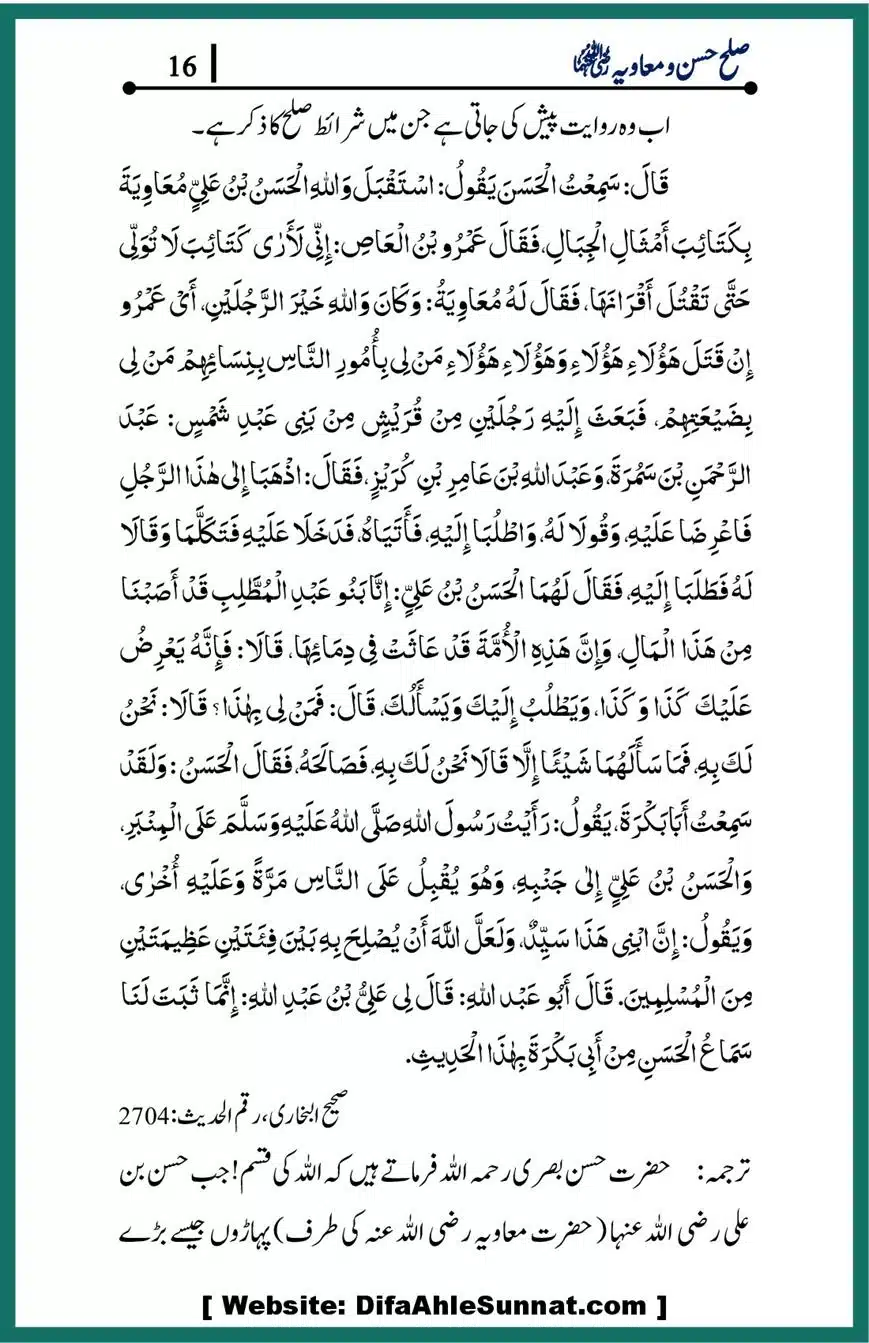 صلح حسن و معاویہ رضی اللہ عنہما 16
اب وہ روایت پیش کی جاتی ہے جن میں شرائط صلح کا ذکر ہے۔
قَالَ: سَمِعْتُ الْحَسَنَ يَقُولُ: اسْتَقْبَلَ وَاللهِ الْحَسَنُ بْنُ عَلِيٍّ مُعَاوِيَةَ
بِكَتَائِبَ أَمْثَالِ الْجِبَالِ، فَقَالَ عَمْرُو بْنُ الْعَاصِ: إِنِّي لَأَرٰى كَتَائِبَ لَا تُوَلِّي
حَتَّى تَقْتُلَ أَقْرَانَهَا، فَقَالَ لَهُ مُعَاوِيَةُ: وَكَانَ وَاللهِ خَيْرَ الرَّجُلَيْنِ، أَيْ عَمْرُو
إِنْ قَتَلَ هَؤُلَاءِ هَؤُلَاءِ وَهَؤُلَاءِ هَؤُلَاءِ مَنْ لِي بِأُمُورِ النَّاسِ بِنِسَائِهِمْ مَنْ لِي
بِضَيْعَتِهِمْ، فَبَعَثَ إِلَيْهِ رَجُلَيْنِ مِنْ قُرَيْشٍ مِنْ بَنِي عَبْدِ شَمْسٍ: عَبْدَ
الرَّحْمَنِ بْنَ سَمُرَةَ، وَعَبْدَ اللهِ بْنَ عَامِرِ بْنِ كُرَيْزٍ، فَقَالَ: اذْهَبَا إِلٰى هٰذَا الرَّجُلِ
فَاعْرِضَا عَلَيْهِ، وَقُولَا لَهُ، وَاطْلُبَا إِلَيْهِ، فَأَتَيَاهُ، فَدَخَلَا عَلَيْهِ فَتَكَلَّمَا وَقَالَا
لَهُ فَطَلَبَا إِلَيْهِ، فَقَالَ لَهُمَا الْحَسَنُ بْنُ عَلِيٍّ: إِنَّا بَنُو عَبْدِ الْمُطَّلِبِ قَدْ أَصَبْنَا
مِنْ هَذَا الْمَالِ، وَإِنَّ هَذِهِ الْأُمَّةَ قَدْ عَاثَتْ فِي دِمَائِهَا، قَالَا: فَإِنَّهُ يَعْرِضُ
عَلَيْكَ كَذَا وَكَذَا، وَيَطْلُبُ إِلَيْكَ وَيَسْأَلُكَ، قَالَ: فَمَنْ لِي بِهٰذَا؟ قَالَا: نَحْنُ
لَكَ بِهِ، فَمَا سَأَلَهُمَا شَيْئًا إِلَّا قَالَا نَحْنُ لَكَ بِهِ، فَصَالَحَهُ، فَقَالَ الْحَسَنُ: وَلَقَدْ
سَمِعْتُ أَبَا بَكْرَةَ، يَقُولُ: رَأَيْتُ رَسُولَ اللهِ صَلَّى اللهُ عَلَيْهِ وَسَلَّمَ عَلَى الْمِنْبَرِ،
وَالْحَسَنُ بْنُ عَلِيٍّ إِلٰى جَنْبِهِ، وَهُوَ يُقْبِلُ عَلَى النَّاسِ مَرَّةً وَعَلَيْهِ أُخْرٰى،
وَيَقُولُ: إِنَّ ابْنِي هَذَا سَيِّدٌ، وَلَعَلَّ اللَّهَ أَنْ يُصْلِحَ بِهِ بَيْنَ فِئَتَيْنِ عَظِيمَتَيْنِ
مِنَ الْمُسْلِمِينَ. قَالَ أَبُو عَبْدِ اللهِ: قَالَ لِي عَلِيُّ بْنُ عَبْدِ اللهِ: إِنَّمَا ثَبَتَ لَنَا
سَمَاعُ الْحَسَنِ مِنْ أَبِي بَكْرَةَ بِهٰذَا الْحَدِيثِ.
صحیح البخاری، رقم الحدیث: 2704
ترجمہ: حضرت حسن بصری رحمہ اللہ فرماتے ہیں کہ اللہ کی قسم! جب حسن بن
علی رضی اللہ عنہا (حضرت معاویہ رضی اللہ عنہ کی طرف) پہاڑوں جیسے بڑے
[ Website: DifaAhleSunnat.com ]